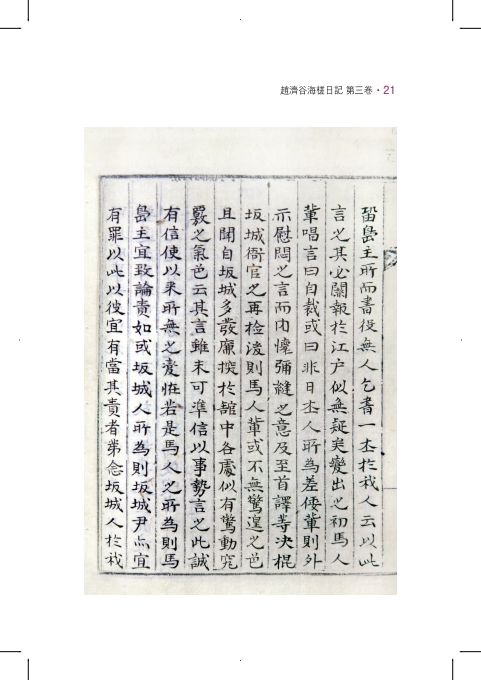 趙濟谷海槎日記 第三卷 · 21
留島主所而書役無人乞書一本於我人云以此
言之其必關報於江戶似無疑矣變出之初馬人
輩唱言曰自裁或曰非日本人所為差倭輩則外
示慰問之言而內懷彌縫之意及至首譯等決棍
坂城衙官之再檢後則馬人輩或不無驚遑之色
且聞自坂城多發廉探於館中各處似有驚動究
覈之氣色云其言雖未可準信以事勢言之此誠
有信使以來所無之變怪若是馬人之所為則馬
島主宜致論責如或坂城人所為則坂城尹亦宜
有罪以此以彼宜有當其責者第念坂城人於我